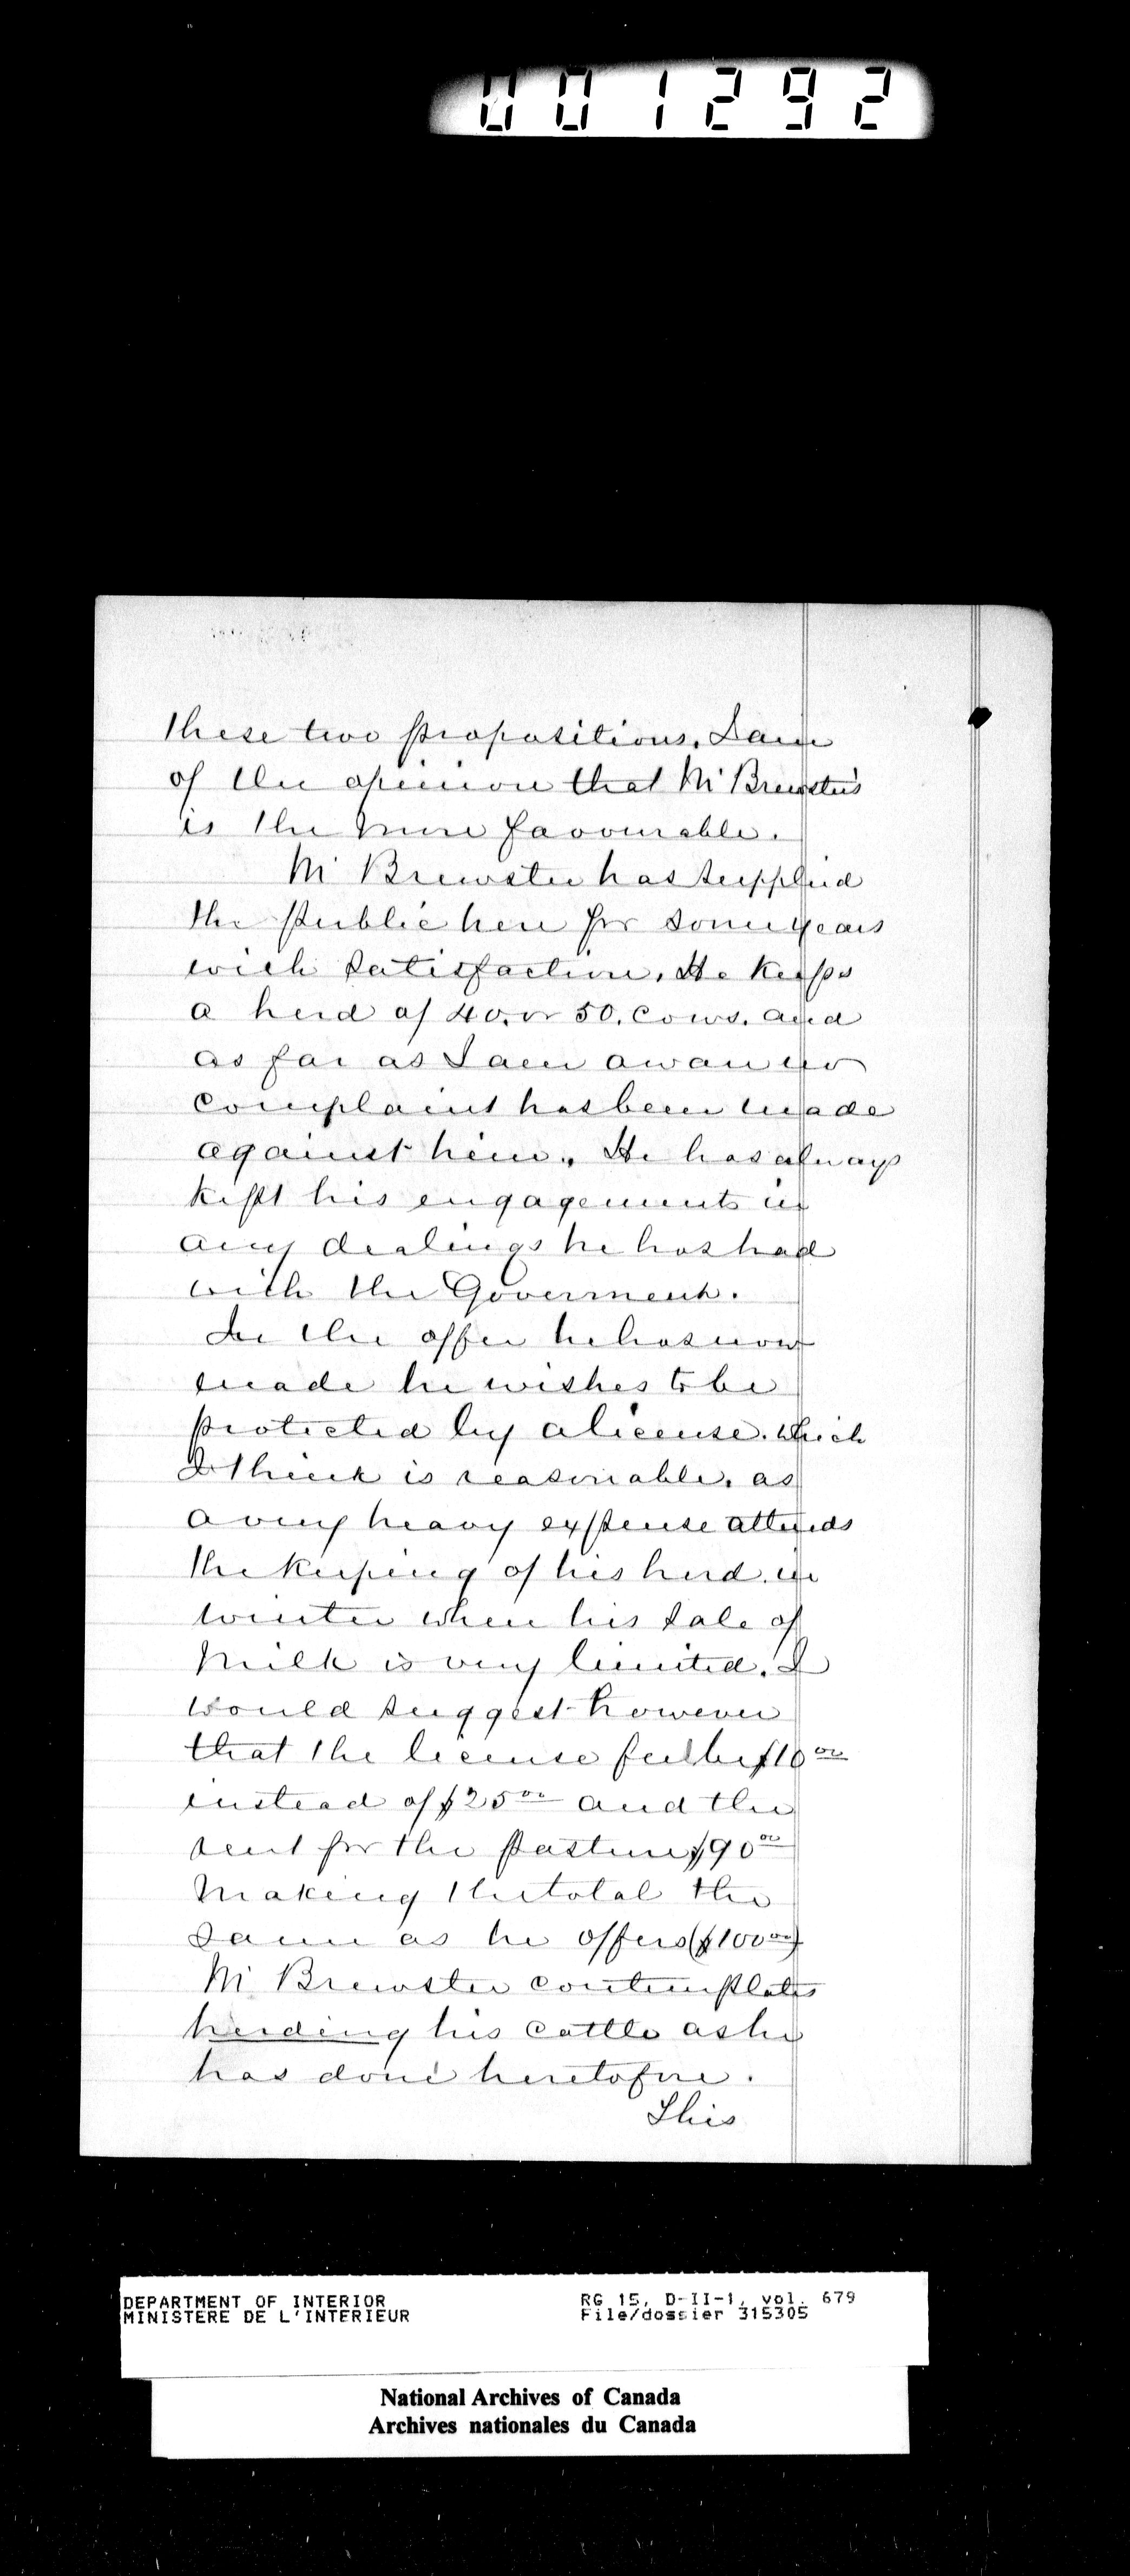 001292
these two propositions. I am
of the opinion that Mr Brewster's
is the more favourable.
Mr Brewster has supplied
the public here for some years
with satisfaction. He keeps
a herd of 40. or 50. Cows. and
as far as I am aware no
complaint has been made
against him. He has always
kept his engagements in
any dealings he has had
with the Goverment.
In the offer he has now
made he wishes to be
protected by a license. which
I think is reasonable. as
a very heavy expense attends
the keeping of his herd. in
winter when his sale of
Milk is very limited. I
would suggest however
that the license fee be $10 00
instead of $25 00 and the
rent for the pasture $90 00
Making the total the
same as he offers ($100 00)
Mr Brewster contemplates
herding his cattle as he
has done heretofore.
This
DEPARTMENT OF INTERIOR
MINISTERE DE L'INTERIEUR
RG 15, D-II-1, vol. 679
File/dossier 315305
National Archives of Canada
Archives nationales du Canada